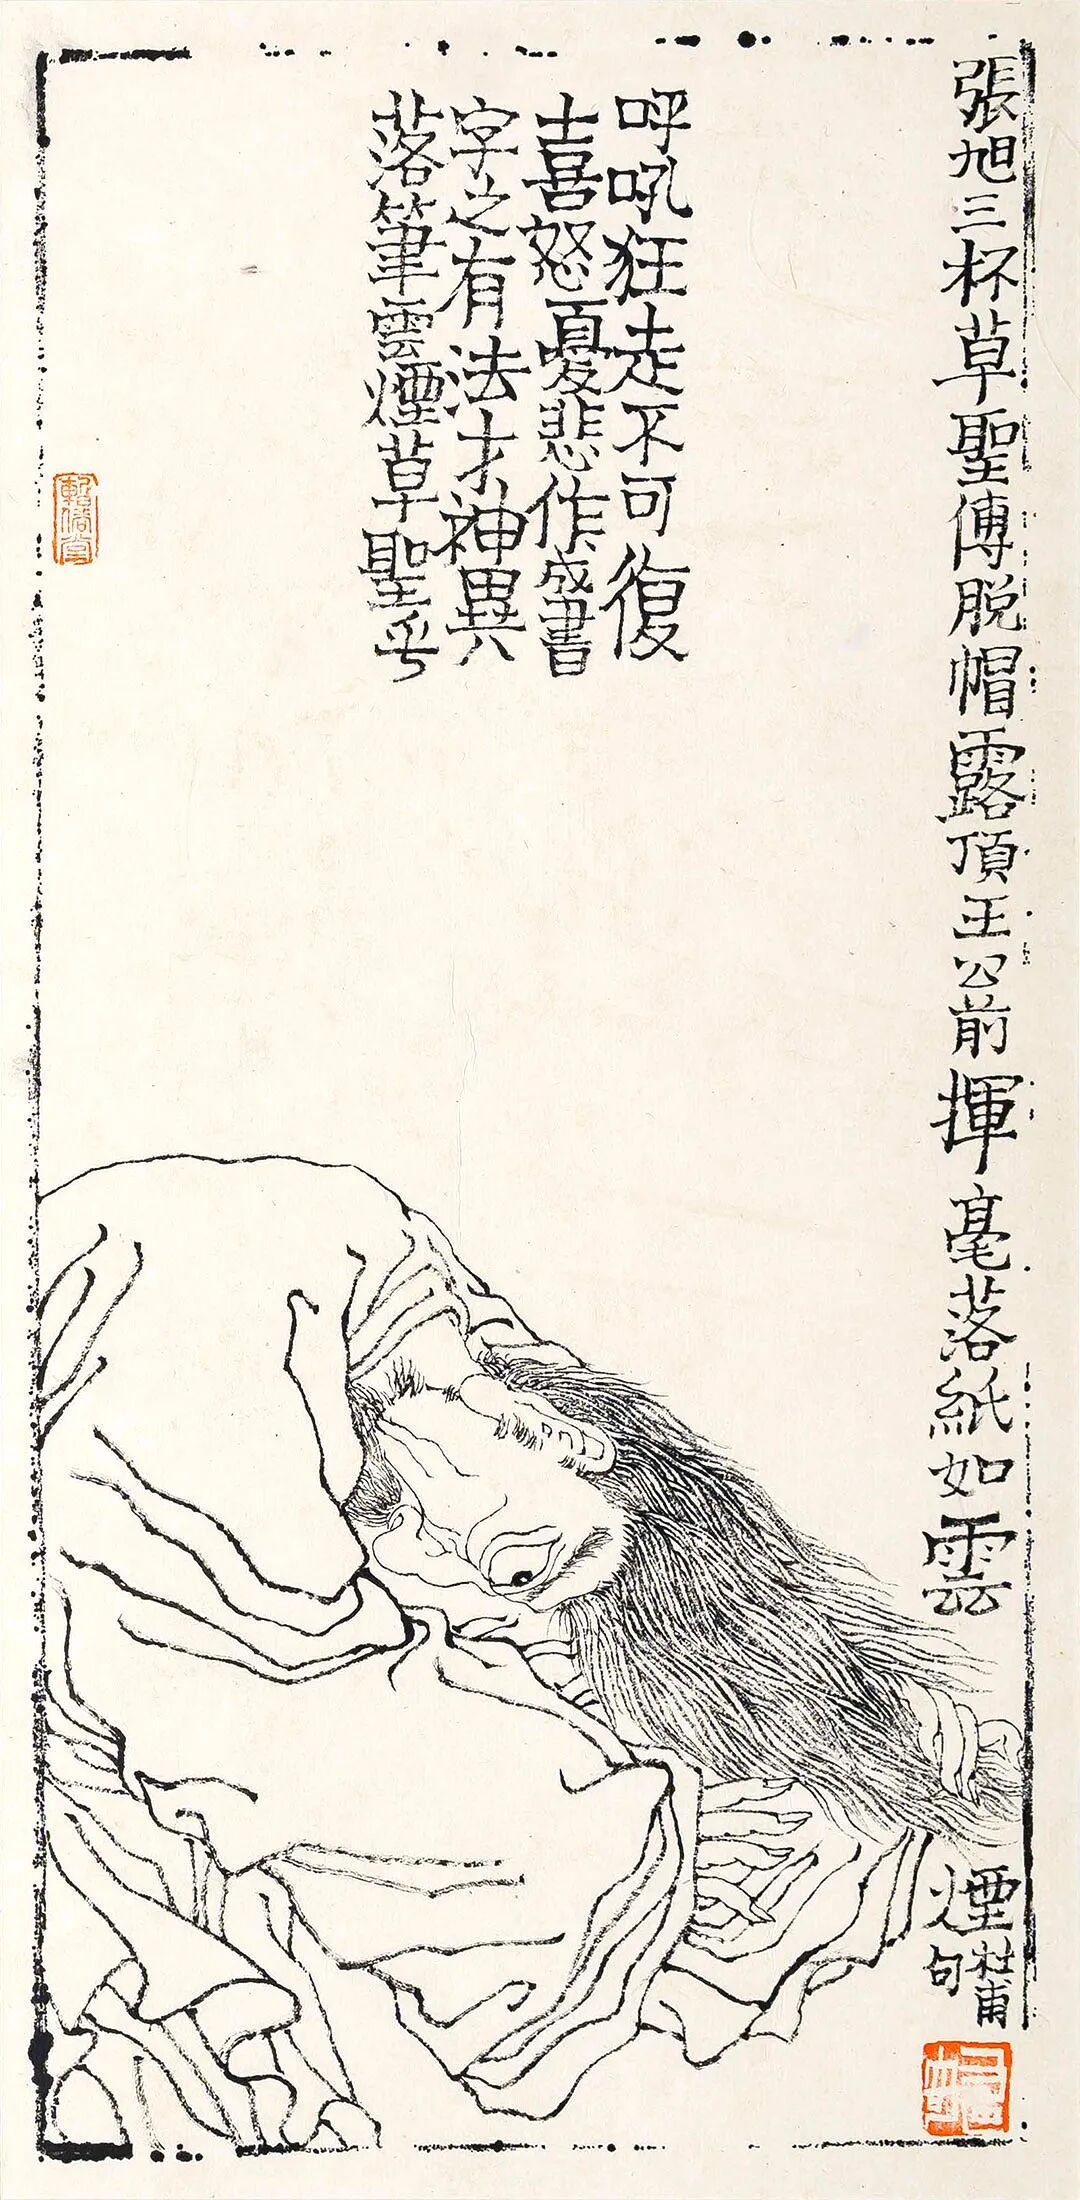 張旭三杯草聖傳脱帽露頂王公前揮毫落紙如雲煙
杜甫
句
呼吼狂走不可復
喜怒憂悲作盛書
字之有法才神異
落筆雲煙草聖乎